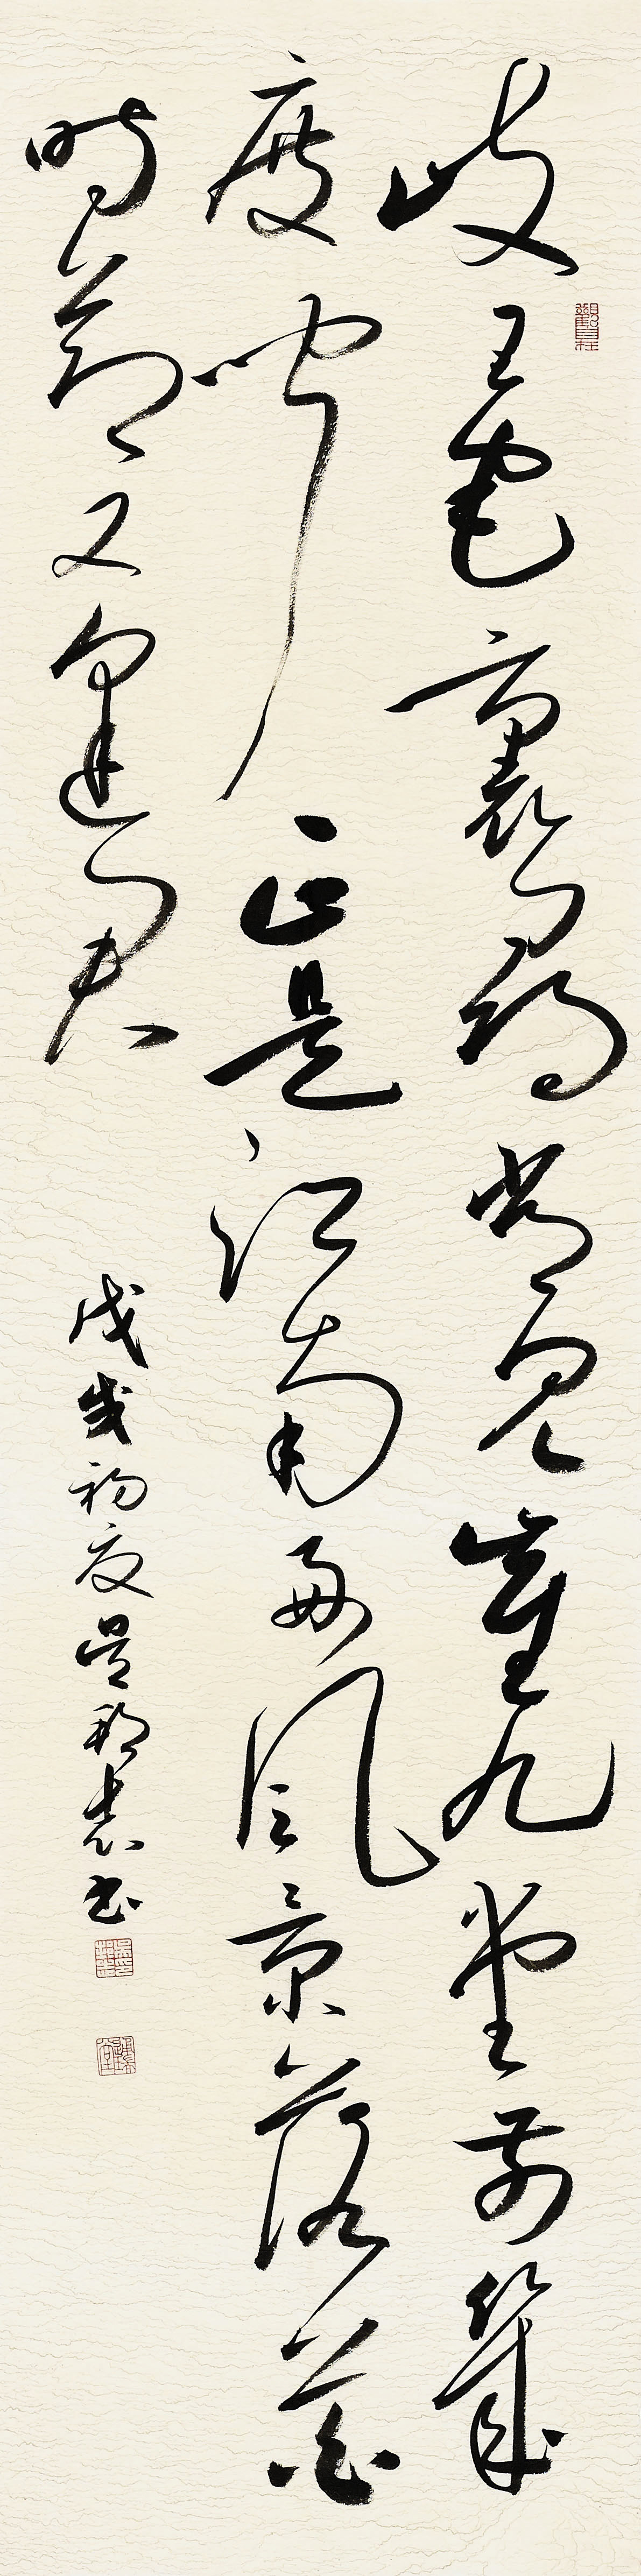 岐王宅裏尋常見崔九堂前幾
度聞正是江南好風景落花
時節又逢君
戊戌初夏吳書